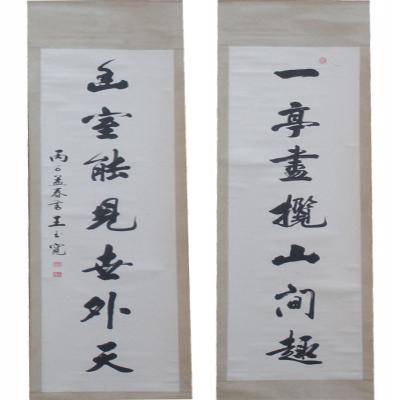 一亭盡攬山间趣
幺室能見世外天
丙子孟春書王之寬